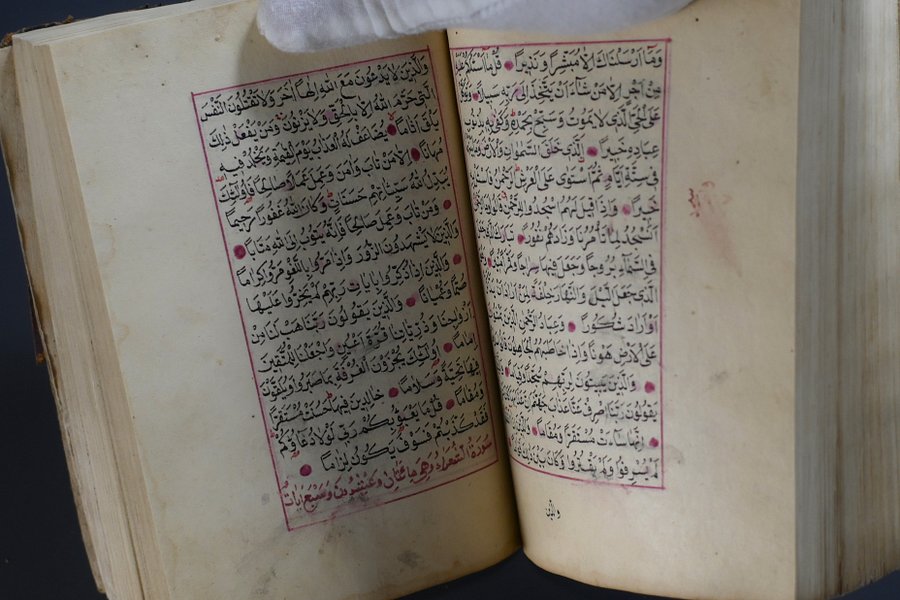 وَمَا اَرْسَلْنَاكَ اِلَّا مُبَشِّرًا وَنَذِيرًا قُلْ مَا اَسْئَلُكُمْ
مِنْ اَجْرٍ اِلَّا مَنْ شَاءَ اَنْ يَتَّخِذَ اِلٰى رَبِّهِ سَبِيلًا
عَلَى الْحَيِّ الَّذِى لَا يَمُوتُ وَسَبِّحْ بِحَمْدِهِ وَكَفٰى بِهِ
عِبَادِهِ خَبِيرًا اَلَّذِى خَلَقَ السَّمٰوَاتِ وَالْاَرْضَ وَمَا
فِى سِتَّةِ اَيَّامٍ ثُمَّ اسْتَوٰى عَلَى الْعَرْشِ الرَّحْمٰنُ
خَبِيرًا وَاِذَا قِيلَ لَهُمُ اسْجُدُوا لِلرَّحْمٰنِ
اَنَسْجُدُ لِمَا تَأْمُرُنَا وَزَادَهُمْ نُفُورًا تَبَارَكَ
فِى السَّمَاءِ بُرُوجًا وَجَعَلَ فِيهَا سِرَاجًا وَقَمَرًا
الَّذِى جَعَلَ الَّيْلَ وَالنَّهَارَ خِلْفَةً لِمَنْ اَرَادَ
اَوْ اَرَادَ شُكُورًا وَعِبَادُ الرَّحْمٰنِ
عَلَى الْاَرْضِ هَوْنًا وَاِذَا خَاطَبَهُمُ الْجَاهِلُونَ
وَالَّذِينَ يَبِيتُونَ لِرَبِّهِمْ سُجَّدًا
يَقُولُونَ رَبَّنَا اصْرِفْ عَنَّا عَذَابَ جَهَنَّمَ
اِنَّهَا سَاءَتْ مُسْتَقَرًّا وَمُقَامًا
لَمْ يُسْرِفُوا وَلَمْ يَقْتُرُوا وَكَانَ بَيْنَ
والذين
وَالَّذِينَ لَا يَدْعُونَ مَعَ اللّٰهِ اِلٰهًا اٰخَرَ وَلَا يَقْتُلُونَ النَّفْسَ
الَّتِى حَرَّمَ اللّٰهُ اِلَّا بِالْحَقِّ وَلَا يَزْنُونَ وَمَنْ يَفْعَلْ ذٰلِكَ
يَلْقَ اَثَامًا يُضَاعَفْ لَهُ الْعَذَابُ يَوْمَ الْقِيٰمَةِ وَيَخْلُدْ فِيهِ
مُهَانًا اِلَّا مَنْ تَابَ وَاٰمَنَ وَعَمِلَ عَمَلًا صَالِحًا فَاُولٰئِكَ
يُبَدِّلُ اللّٰهُ سَيِّئَاتِهِمْ حَسَنَاتٍ وَكَانَ اللّٰهُ غَفُورًا رَحِيمًا
وَمَنْ تَابَ وَعَمِلَ صَالِحًا فَاِنَّهُ يَتُوبُ اِلَى اللّٰهِ مَتَابًا
وَالَّذِينَ لَا يَشْهَدُونَ الزُّورَ وَاِذَا مَرُّوا بِاللَّغْوِ مَرُّوا كِرَامًا
وَالَّذِينَ اِذَا ذُكِّرُوا بِاٰيَاتِ رَبِّهِمْ لَمْ يَخِرُّوا عَلَيْهَا
صُمًّا وَعُمْيَانًا وَالَّذِينَ يَقُولُونَ رَبَّنَا هَبْ لَنَا مِنْ
اَزْوَاجِنَا وَذُرِّيَّاتِنَا قُرَّةَ اَعْيُنٍ وَاجْعَلْنَا لِلْمُتَّقِينَ
اِمَامًا اُولٰئِكَ يُجْزَوْنَ الْغُرْفَةَ بِمَا صَبَرُوا وَيُلَقَّوْنَ
فِيهَا تَحِيَّةً وَسَلَامًا خَالِدِينَ فِيهَا حَسُنَتْ مُسْتَقَرًّا
وَمُقَامًا قُلْ مَا يَعْبَؤُ بِكُمْ رَبِّى لَوْلَا دُعَاؤُكُمْ
فَقَدْ كَذَّبْتُمْ فَسَوْفَ يَكُونُ لِزَامًا
سُورَةُ الشُّعَرَاء وَهِىَ مِائَتَانِ وَعِشْرُونَ وَسَبْعُ اٰيَات